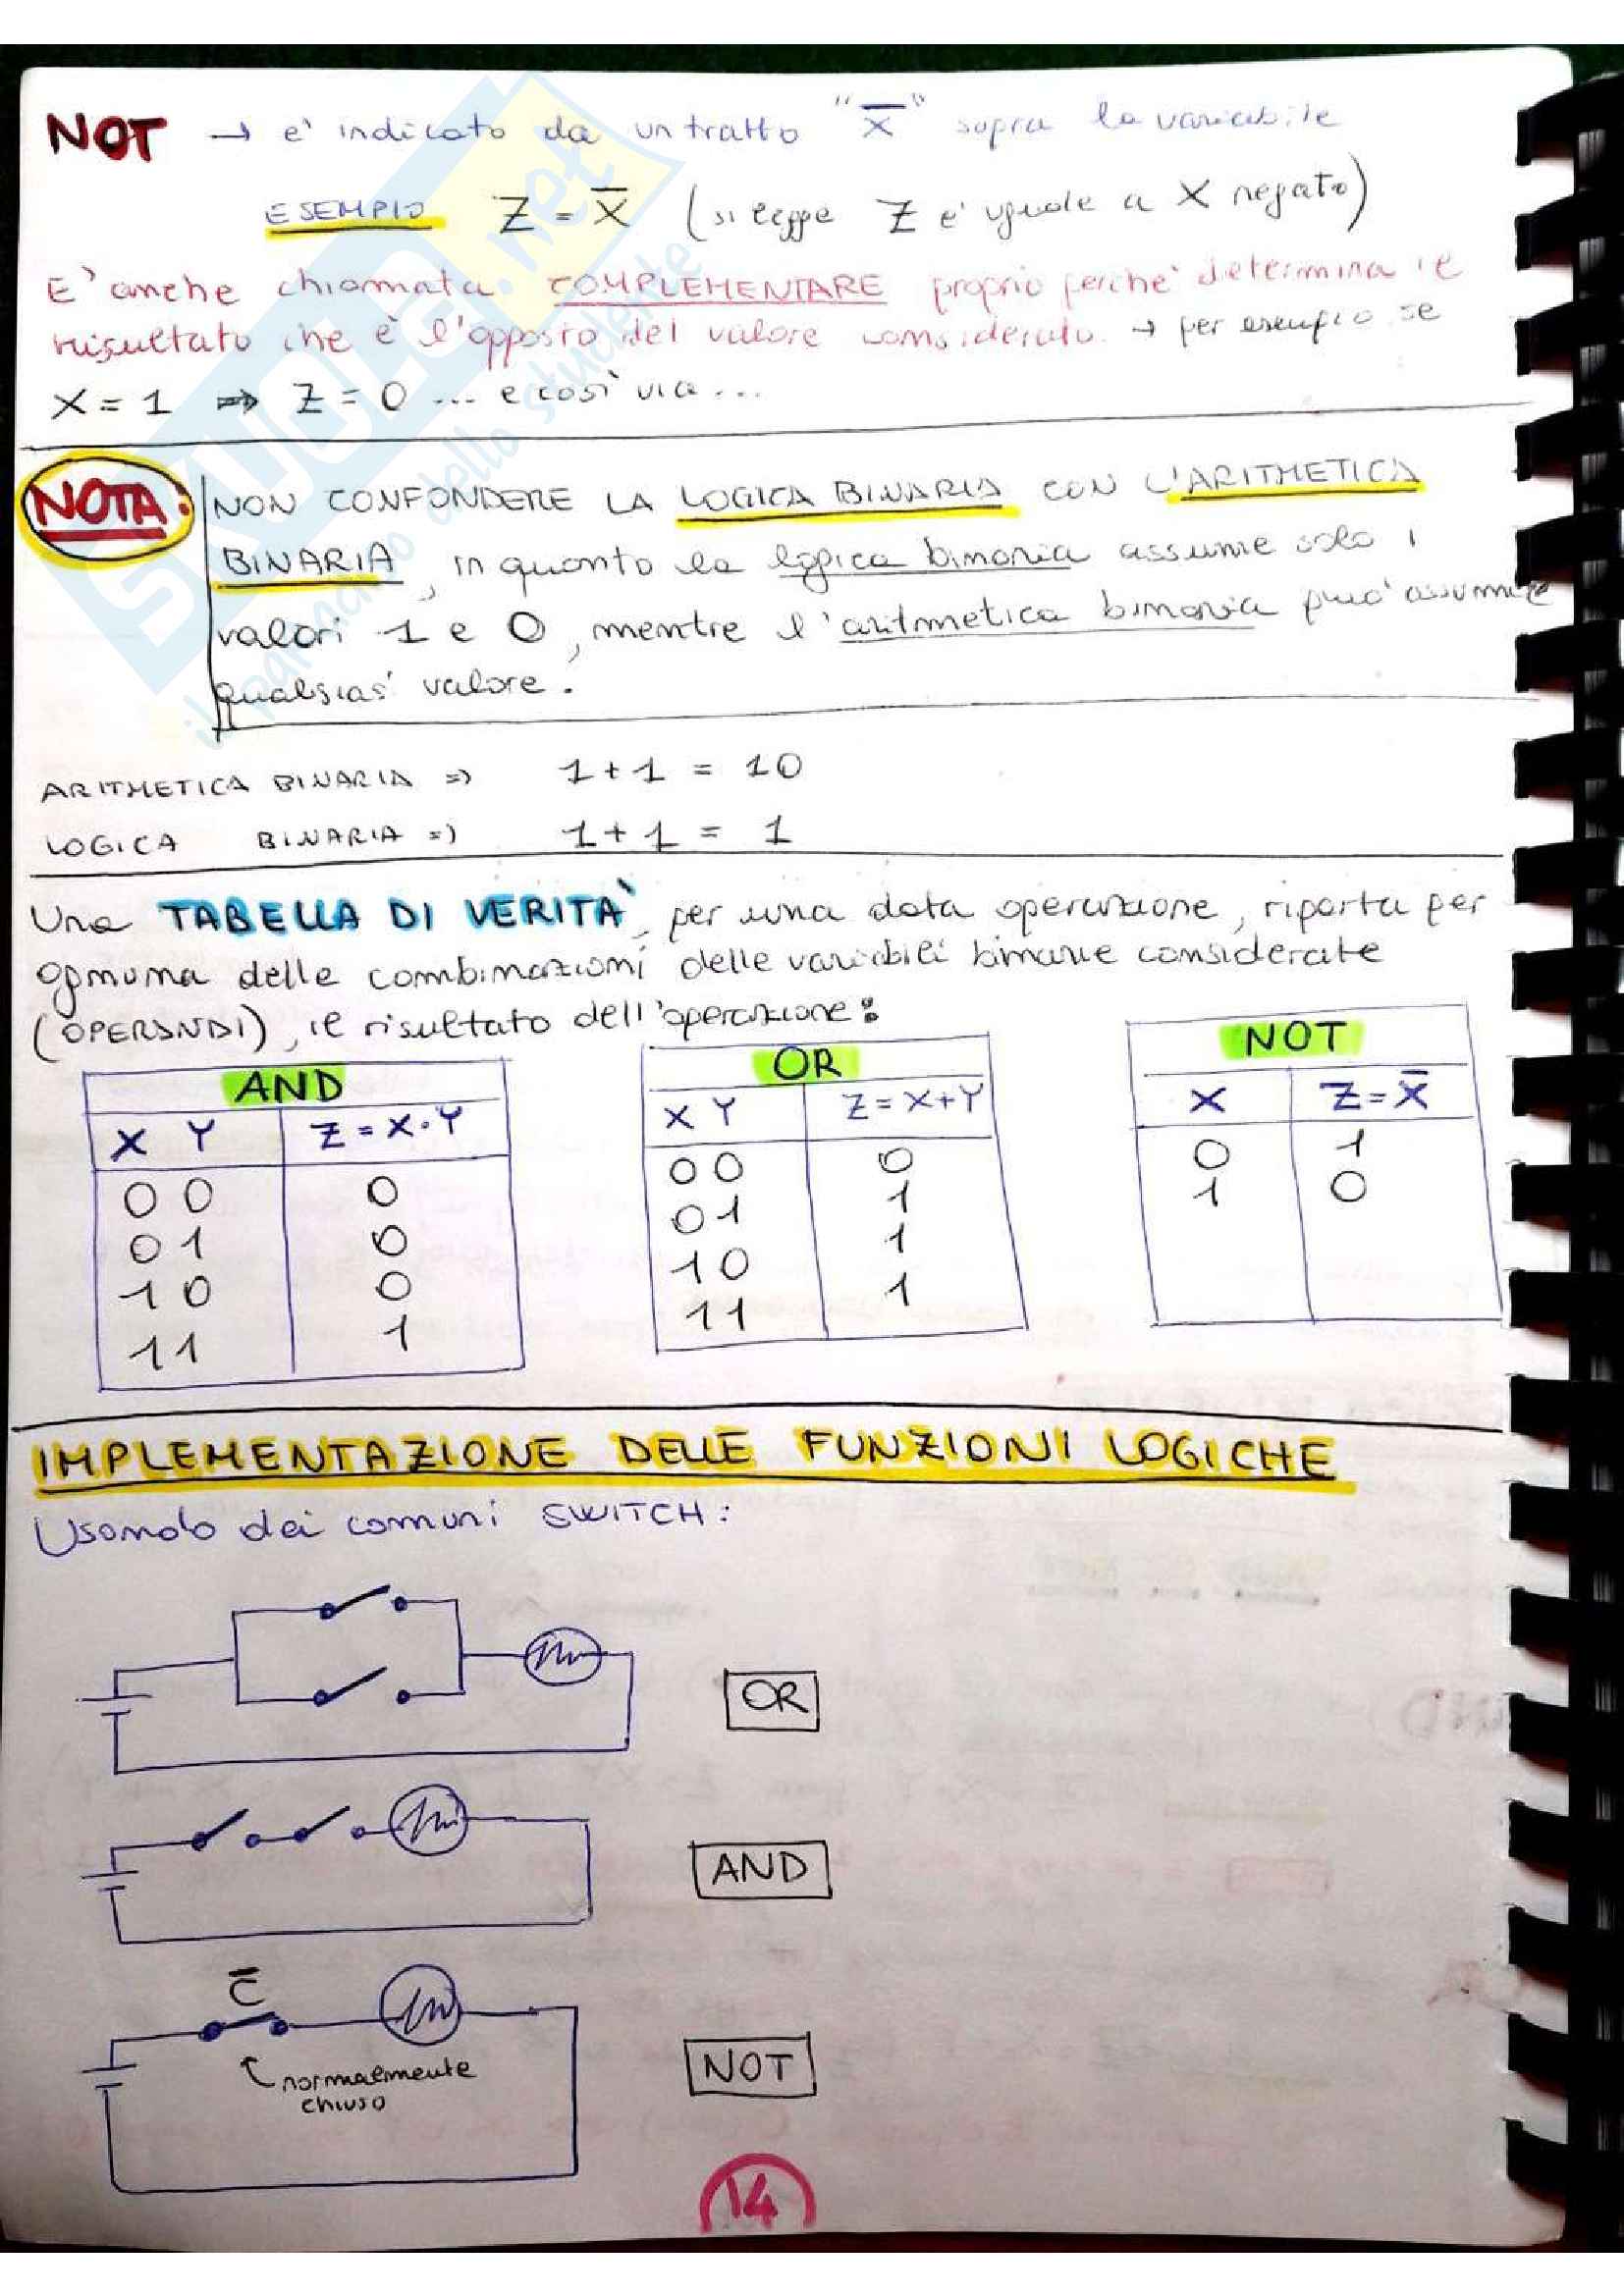 NOT → e' indicato da un tratto "x̅" sopra la variabile
ESEMPIO Z = X̅ (si legge Z e' uguale a X negato)
E' anche chiamata COMPLEMENTARE proprio perche' determina il
risultato che è l'opposto del valore considerato. → per esempio se
X = 1 ⇒ Z = 0 ... e così via...
NOTA: NON CONFONDERE LA LOGICA BINARIA CON L'ARITMETICA
BINARIA, in quanto la logica binaria assume solo i
valori 1 e 0, mentre l'aritmetica binaria può assumere
qualsiasi valore.
ARITMETICA BINARIA => 1+1 = 10
LOGICA BINARIA => 1+1 = 1
Una TABELLA DI VERITA', per una data operazione, riporta per
ognuna delle combinazioni delle variabili binarie considerate
(OPERANDI), il risultato dell'operazione:
AND
X Y Z = X·Y
0 0 0
0 1 0
1 0 0
1 1 1
OR
X Y Z = X+Y
0 0 0
0 1 1
1 0 1
1 1 1
NOT
X Z = X̅
0 1
1 0
IMPLEMENTAZIONE DELLE FUNZIONI LOGICHE
Usando dei comuni SWITCH:
OR
AND
C̅
normalmente
chiuso
NOT
14
SKUOLA.net
il paradiso dello studente